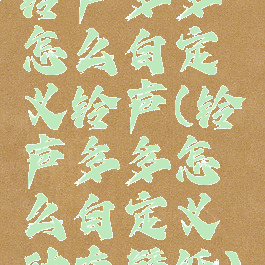 铃声多多
怎么自定
义铃声(铃
声多多怎
么自定义